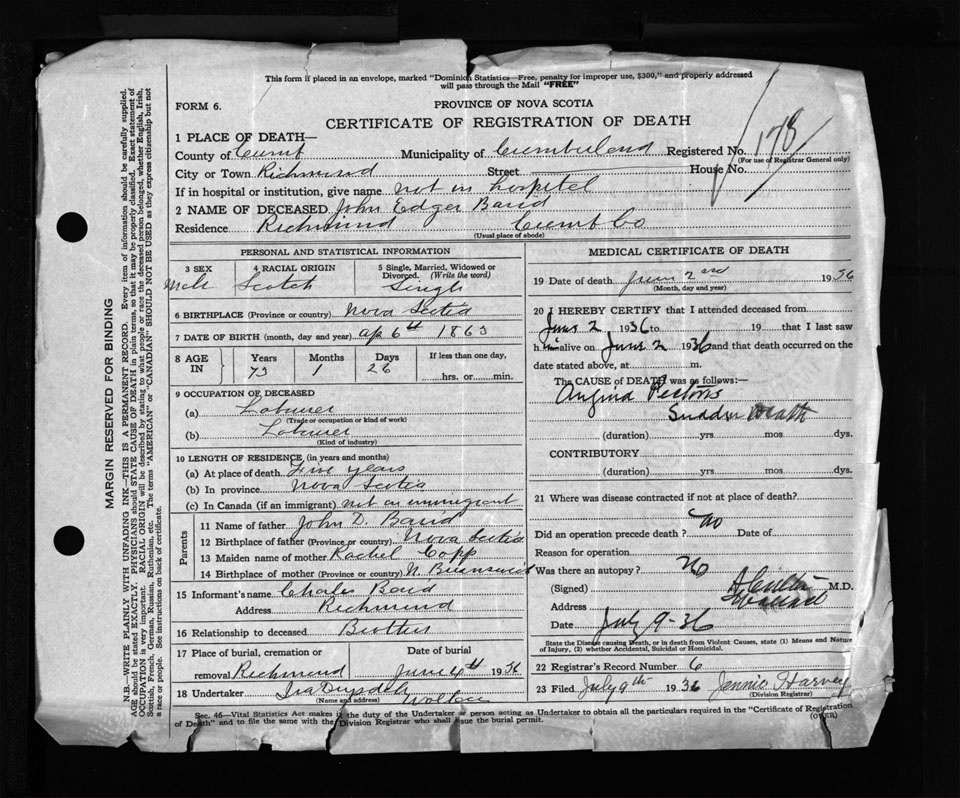 This form if placed in an envelope, marked "Dominion Statistics—Free, penalty for improper use, $300," and properly addressed
will pass through the Mail "FREE"
FORM 6.
PROVINCE OF NOVA SCOTIA
CERTIFICATE OF REGISTRATION OF DEATH
178
1 PLACE OF DEATH—
County of Cumb Municipality of Cumberland Registered No.
(For use of Registrar General only)
City or Town Richmond Street House No.
If in hospital or institution, give name not in hospital
2 NAME OF DECEASED John Edger Baird
Residence Richmond Cumb Co
(Usual place of abode)
PERSONAL AND STATISTICAL INFORMATION
3 SEX 4 RACIAL ORIGIN 5 Single, Married, Widowed or Divorced. (Write the word)
Male Scotch Single
6 BIRTHPLACE (Province or country) Nova Scotia
7 DATE OF BIRTH (month, day and year) Ap 6th 1863
8 AGE IN Years Months Days If less than one day,
73 1 26 hrs. or min.
9 OCCUPATION OF DECEASED
(a) Labourer
(Trade or occupation or kind of work)
(b) Labourer
(Kind of industry)
10 LENGTH OF RESIDENCE (in years and months)
(a) At place of death Five years
(b) In province Nova Scotia
(c) In Canada (if an immigrant) not an immigrant
Parents
11 Name of father John D. Baird
12 Birthplace of father (Province or country) Nova Scotia
13 Maiden name of mother Rachel Copp
14 Birthplace of mother (Province or country) N. Brunswick
15 Informant's name Charles Baird
Address Richmond
16 Relationship to deceased Brother
17 Place of burial, cremation or Date of burial
removal Richmond June 4th 1936
18 Undertaker
(Name and address) Wallace
MEDICAL CERTIFICATE OF DEATH
19 Date of death June 2nd 1936
(Month, day and year)
20 I HEREBY CERTIFY that I attended deceased from
June 2 1936 to 19 that I last saw
him alive on June 2 1936 and that death occurred on the
date stated above, at m.
The CAUSE of DEATH was as follows:—
Angina Pectoris
Sudden Death
(duration) yrs mos dys.
CONTRIBUTORY
(duration) yrs mos dys.
21 Where was disease contracted if not at place of death?
Did an operation precede death? no Date of
Reason for operation
Was there an autopsy? No
(Signed) M.D.
Address
Date July 9-36
State the Disease causing Death, or in death from Violent Causes, state (1) Means and Nature
of Injury, (2) whether Accidental, Suicidal or Homicidal.
22 Registrar's Record Number 6
23 Filed July 9th 1936 Jennie Harvey
(Division Registrar)
Sec. 46—Vital Statistics Act makes it the duty of the Undertaker or person acting as Undertaker to obtain all the particulars required in the "Certificate of Registration
of Death" and to file the same with the Division Registrar who shall issue the burial permit.
(OVER)
MARGIN RESERVED FOR BINDING
N.B.—WRITE PLAINLY WITH UNFADING INK—THIS IS A PERMANENT RECORD. Every item of information should be carefully supplied.
AGE should be stated EXACTLY. PHYSICIANS should STATE CAUSE OF DEATH in plain terms, so that it may be properly classified. Exact statement of
OCCUPATION is very important. RACIAL ORIGIN will be described by stating to what people or race the deceased person belonged, whether English, Irish,
Scottish, French, German, Russian, Ruthenian, etc. The terms "AMERICAN" or "CANADIAN" SHOULD NOT BE USED as they express citizenship but not
a race or people. See instructions on back of certificate.